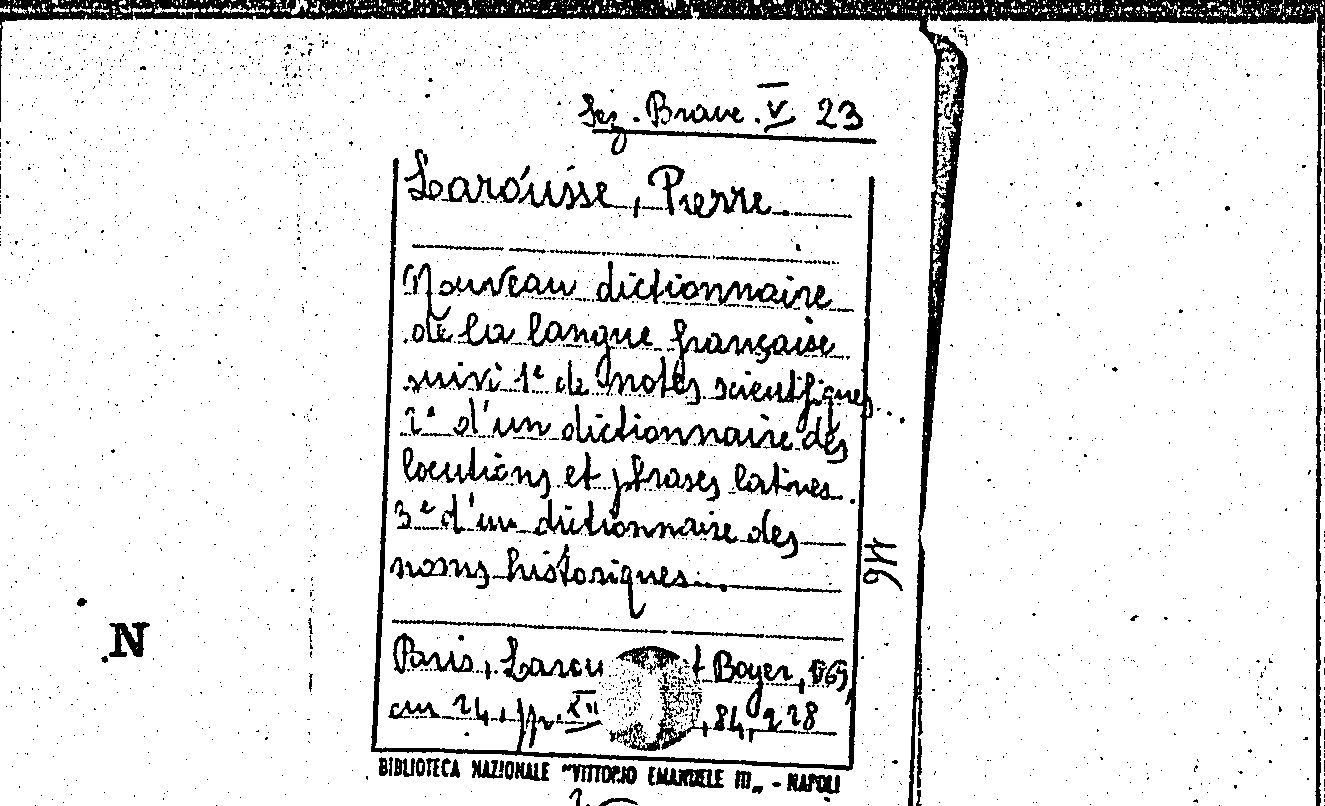 Sez. Branc. V 23
Larousse, Pierre.
Nouveau dictionnaire
de la langue française
suivi 1° de notes scientifiques...
2° d'un dictionnaire des
locutions et phrases latines.
3° d'un dictionnaire des
noms historiques...
N
Paris, Larou t Boyer,
cm 24, pp. XII ,84, 228
BIBLIOTECA NAZIONALE "VITTORIO EMANUELE III„ - NAPOLI